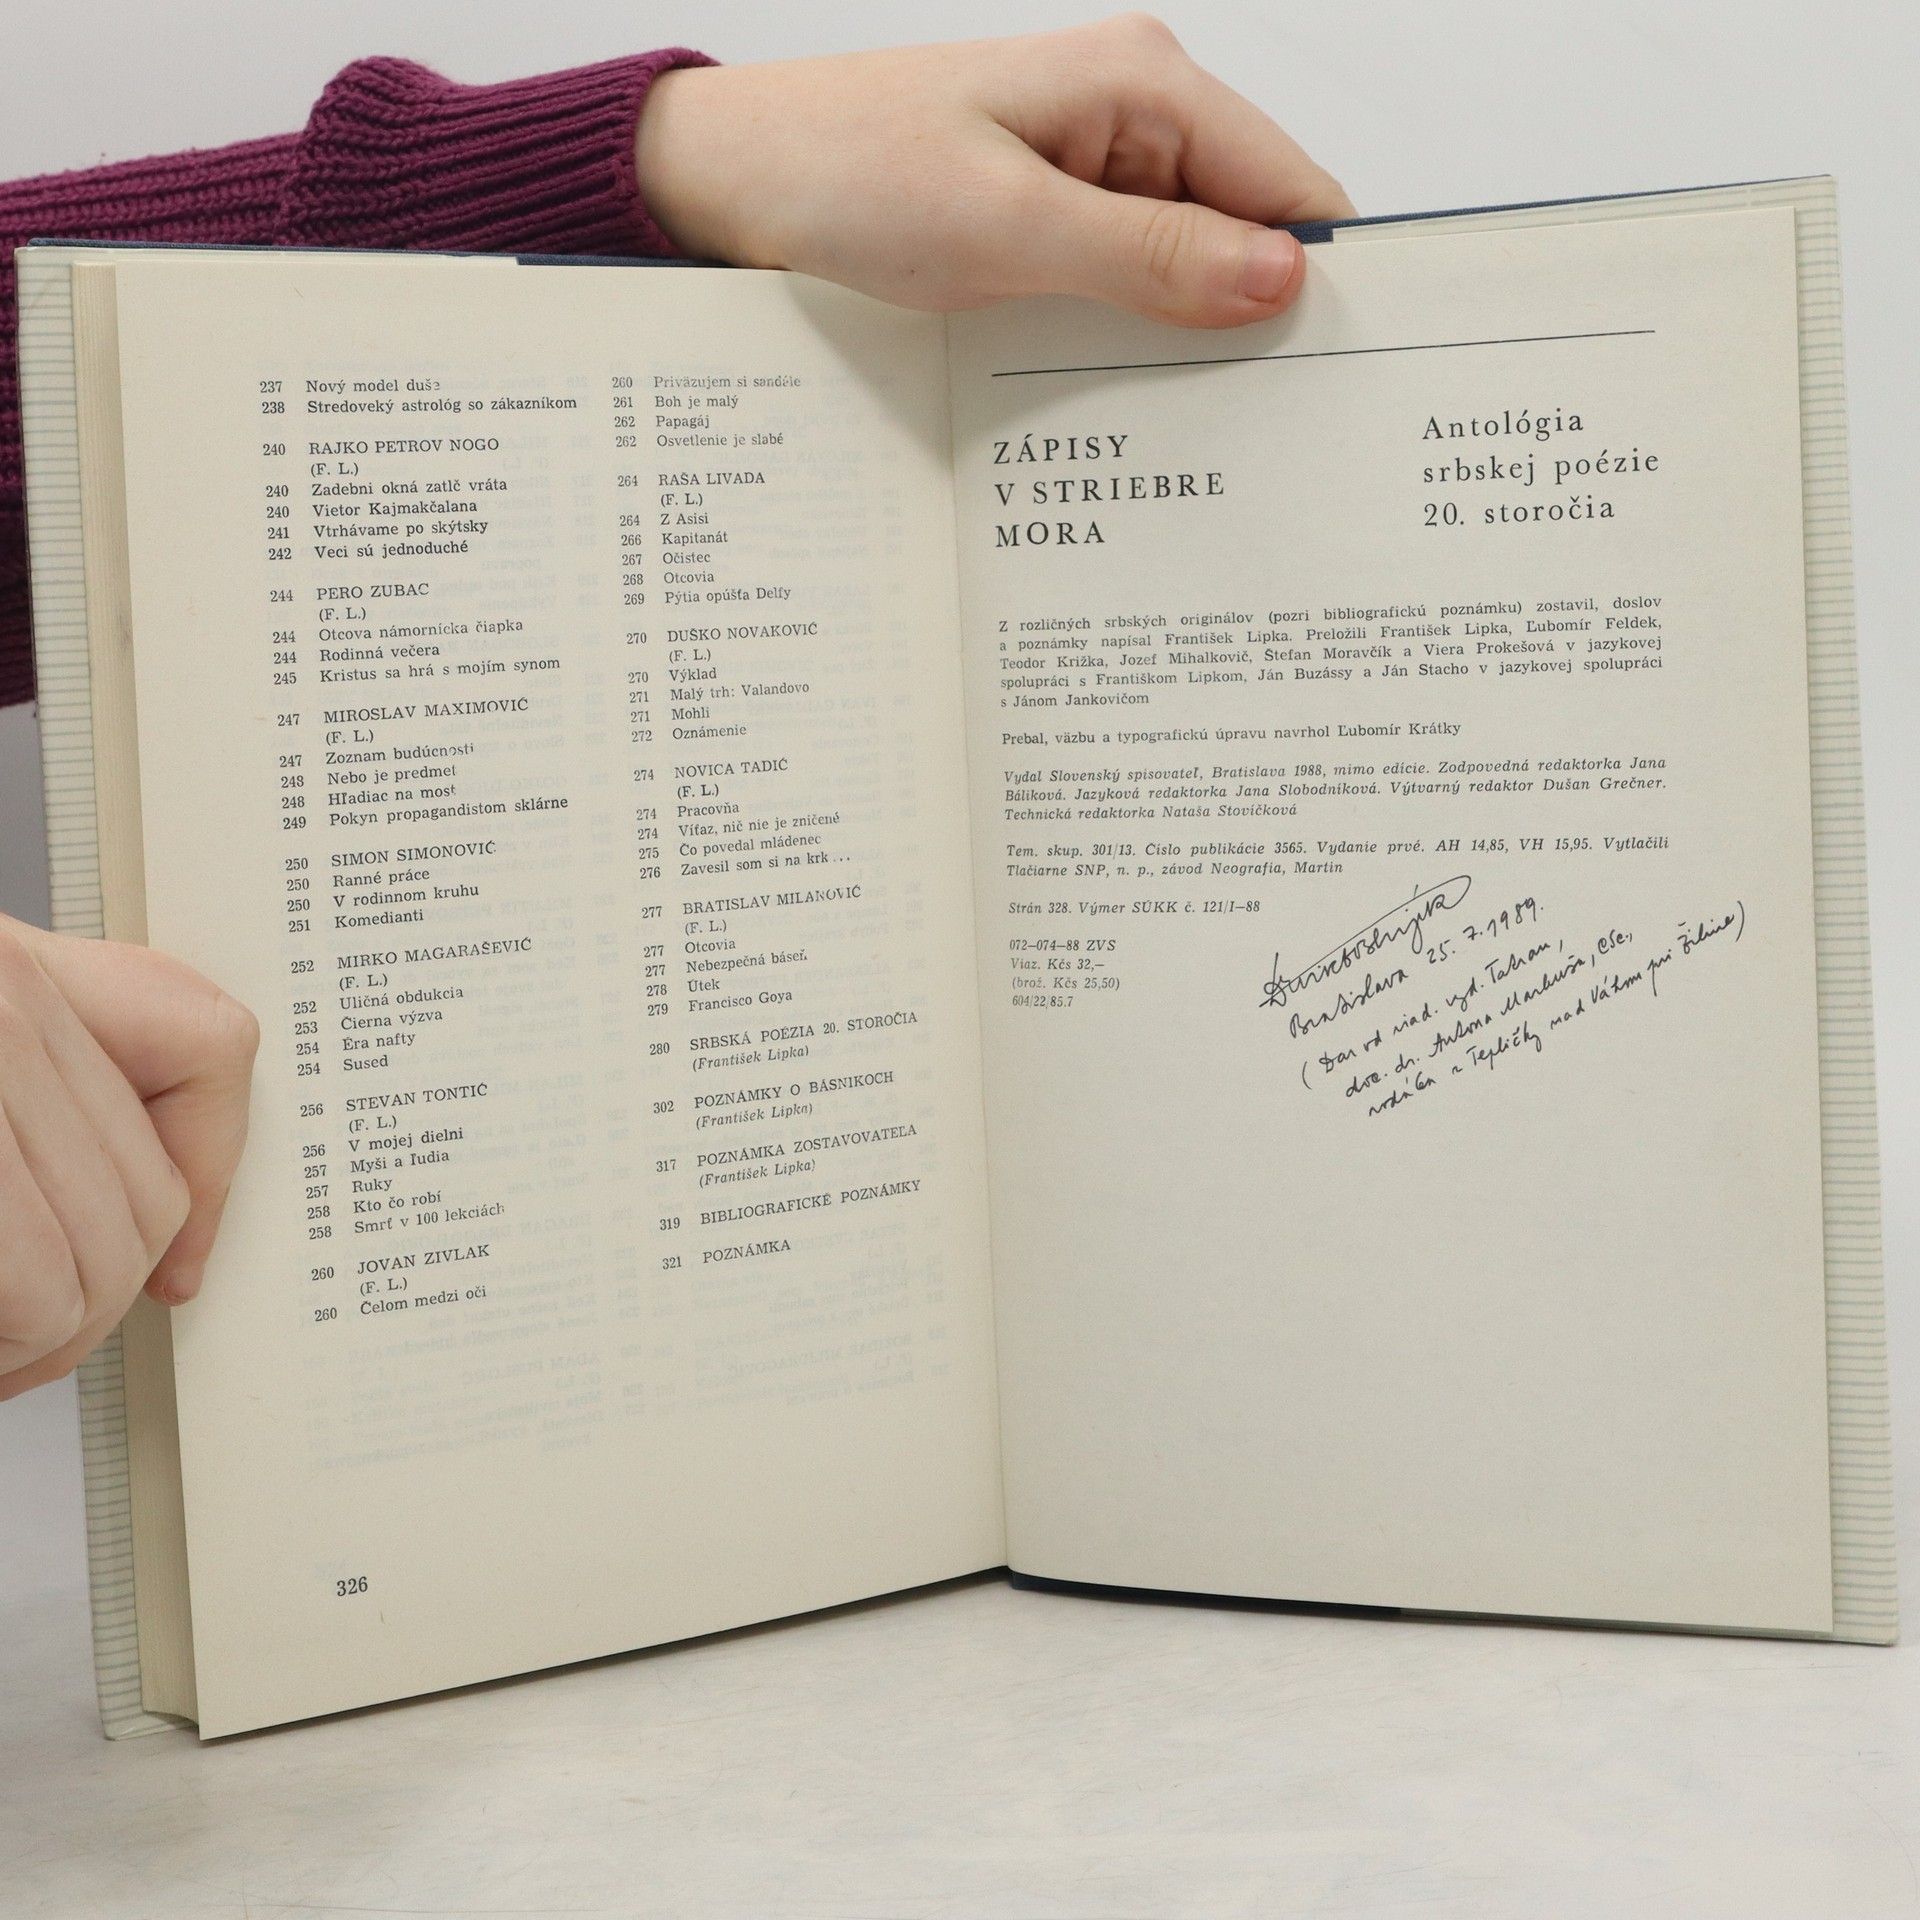 237 Nový model duše
238 Stredoveký astrológ so zákazníkom
240 RAJKO PETROV NOGO
(F. L.)
240 Zadebni okná zatlč vráta
240 Vietor Kajmakčalana
241 Vtrhávame po skýtsky
242 Veci sú jednoduché
244 PERO ZUBAC
(F. L.)
244 Otcova námornícka čiapka
244 Rodinná večera
245 Kristus sa hrá s mojím synom
247 MIROSLAV MAXIMOVIĆ
(F. L.)
247 Zoznam budúcnosti
248 Nebo je predmet
248 Hľadiac na most
249 Pokyn propagandistom sklárne
250 SIMON SIMONOVIĆ
250 Ranné práce
250 V rodinnom kruhu
251 Komedianti
252 MIRKO MAGARAŠEVIĆ
(F. L.)
252 Uličná obdukcia
253 Čierna výzva
254 Éra nafty
254 Sused
256 STEVAN TONTIĆ
(F. L.)
256 V mojej dielni
257 Myši a ľudia
257 Ruky
258 Kto čo robí
258 Smrť v 100 lekciách
260 JOVAN ZIVLAK
(F. L.)
260 Čelom medzi oči
260 Priväzujem si sandále
261 Boh je malý
262 Papagáj
262 Osvetlenie je slabé
264 RAŠA LIVADA
(F. L.)
264 Z Asisi
266 Kapitanát
267 Očistec
268 Otcovia
269 Pýtia opúšťa Delfy
270 DUŠKO NOVAKOVIĆ
(F. L.)
270 Výklad
271 Malý trh: Valandovo
271 Mohli
272 Oznámenie
274 NOVICA TADIĆ
(F. L.)
274 Pracovňa
274 Víťaz, nič nie je zničené
275 Čo povedal mládenec
276 Zavesil som si na krk ...
277 BRATISLAV MILANOVIĆ
(F. L.)
277 Otcovia
277 Nebezpečná báseň
278 Útek
279 Francisco Goya
280 SRBSKÁ POÉZIA 20. STOROČIA
(František Lipka)
302 POZNÁMKY O BÁSNIKOCH
(František Lipka)
317 POZNÁMKA ZOSTAVOVATEĽA
(František Lipka)
319 BIBLIOGRAFICKÉ POZNÁMKY
321 POZNÁMKA
326
ZÁPISY
V STRIEBRE
MORA
Antológia
srbskej poézie
20. storočia
Z rozličných srbských originálov (pozri bibliografickú poznámku) zostavil, doslov
a poznámky napísal František Lipka. Preložili František Lipka, Ľubomír Feldek,
Teodor Križka, Jozef Mihalkovič, Štefan Moravčík a Viera Prokešová v jazykovej
spolupráci s Františkom Lipkom, Ján Buzássy a Ján Stacho v jazykovej spolupráci
s Jánom Jankovičom
Prebal, väzbu a typografickú úpravu navrhol Ľubomír Krátky
Vydal Slovenský spisovateľ, Bratislava 1988, mimo edície. Zodpovedná redaktorka Jana
Báliková. Jazyková redaktorka Jana Slobodníková. Výtvarný redaktor Dušan Grečner.
Technická redaktorka Nataša Stovíčková
Tem. skup. 301/13. Číslo publikácie 3565. Vydanie prvé. AH 14,85, VH 15,95. Vytlačili
Tlačiarne SNP, n. p., závod Neografia, Martin
Strán 328. Výmer SÚKK č. 121/I—88
072—074—88 ZVS
Viaz. Kčs 32,—
(brož. Kčs 25,50)
604/22/85.7
Bratislava 25. 7. 1989.
(Dar od riad. vyd. Tatran,
doc. dr. Antona Markuša, CSc.,
rodáka z Tepličky nad Váhom pri Žiline)